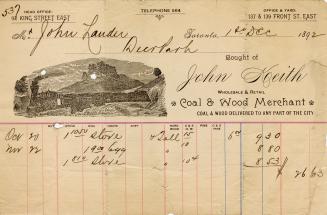 537
HEAD OFFICE:
92 KING STREET EAST
TELEPHONE 664
OFFICE & YARD.
137 & 139 FRONT ST. EAST
Mr John Lauder Toronto, 1st Dec 1892
Deer Park
Bought of
John Keith
WHOLESALE & RETAIL
Coal & Wood Merchant
COAL & WOOD DELIVERED TO ANY PART OF THE CITY
Oct 20 Stove 15 9 30
Nov 22 Egg 10 8 80
Stove 10 8 53
26 63